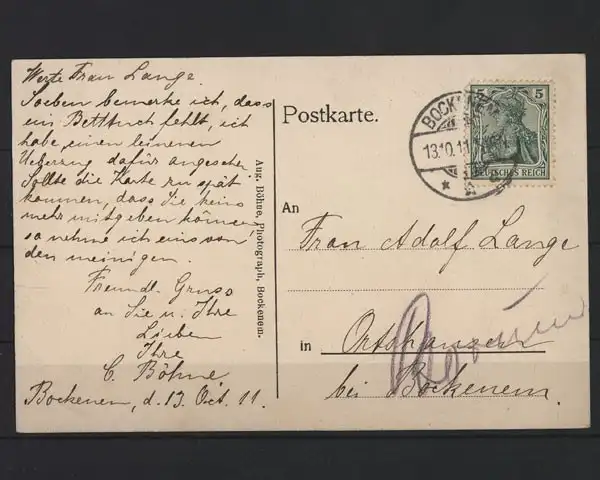 Werte Frau Lange.
Soeben bemerke ich, dass
ein Betttuch fehlt, ich
habe einen leinenen
Ueberzug dafür angesehen
Sollte die Karte zu spät
kommen, dass Sie keins
mehr mitgeben können,
so nehme ich eins von
den meinigen.
Freundl. Gruss
an Sie u. Ihre
Lieben
Ihre
C. Böhne
Bockenem, d. 13. Oct. 11.
Aug. Böhne, Photograph, Bockenem.
Postkarte.
BOCKENEM
13.10.11
5 5
DEUTSCHES REICH
An
Frau Adolf Lange
in Ortshausen
bei Bockenem